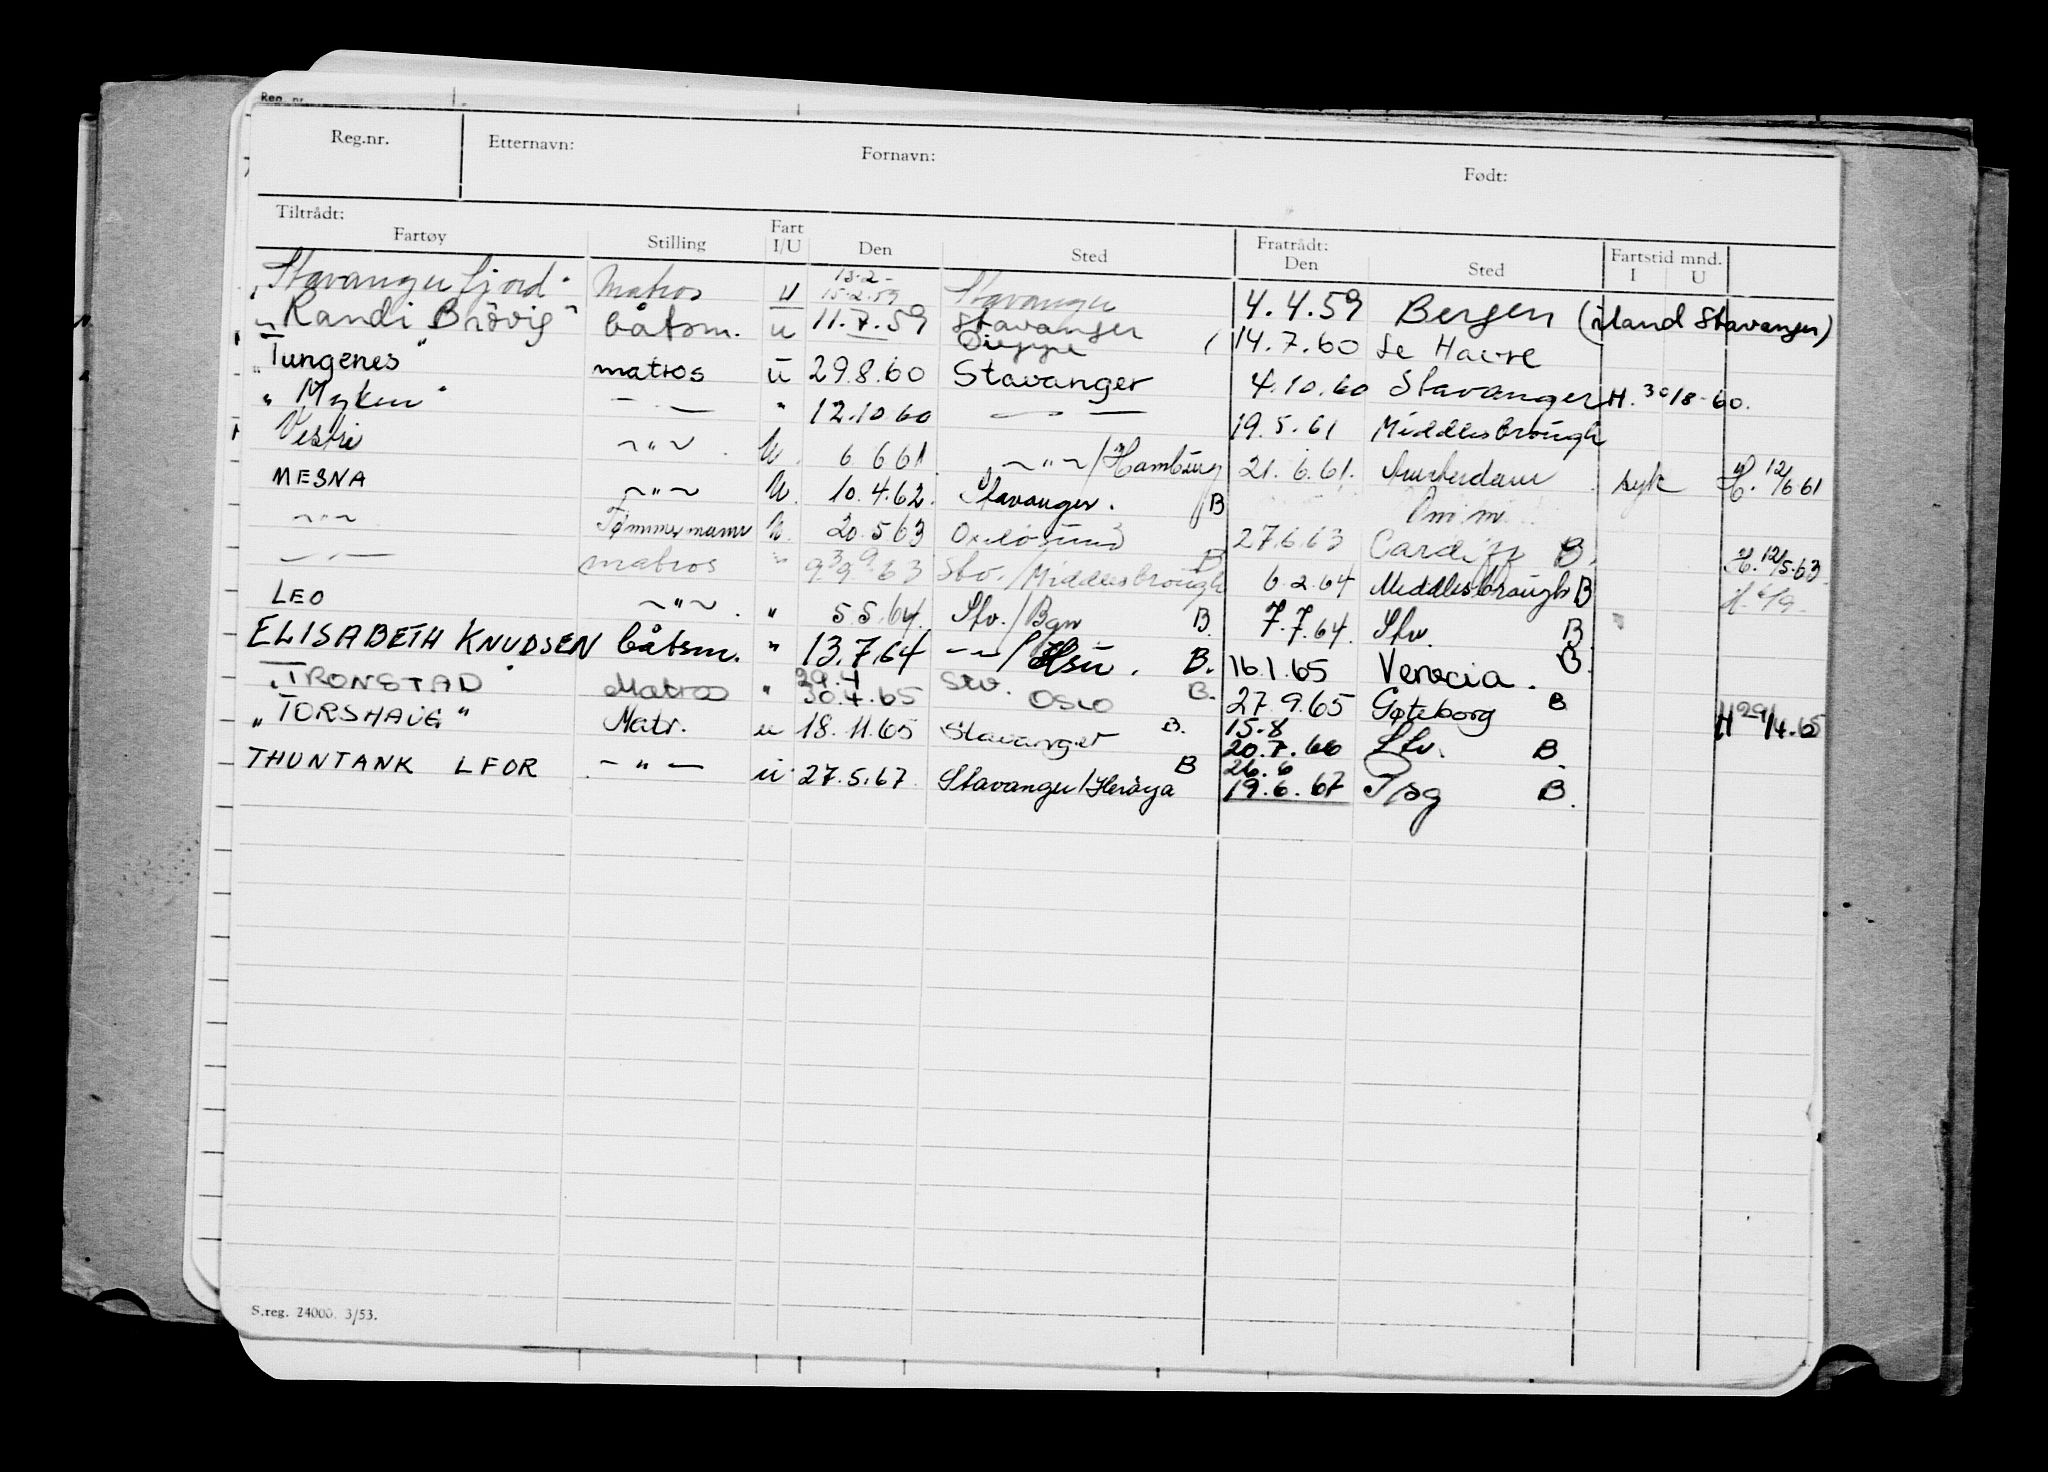 Reg. nr.
Reg.nr. Etternavn: Fornavn: Født:
Tiltrådt: Fratrådt: Fartstid mnd.
Fartøy Stilling Fart I/U Den Sted Den Sted I U
"Stavangerfjord" Matros u 13.2- 15.2.59 Stavanger 4.4.59 Bergen (iland Stavanger)
"Randi Brövig" båtsm. u 11.7.59 Stavanger Dieppe 14.7.60 Le Havre
"Tungenes" matros u 29.8.60 Stavanger 4.10.60 Stavanger H. 30/8-60.
"Myken" — — " 12.10.60 — — 19.5.61 Middlesbrough
Vestri ~"~ U. 6 6 61 ~"~/Hamburg 21.6.61. Amsterdam syk H. 12/6 61
MESNA ~"~ U. 10.4.62. Stavanger. B
~"~ Tømmermann U. 20.5 63 Oxelösund B 27.6.63 Cardiff B. H. 12/5.63
— — matros " 9.63 Stv./Middlesbrough 6.2.64 Middlesbrough B
LEO ~"~ " 5.5.64. Stv./Bgn B. 7.7.64. Stv. B
ELISABETH KNUDSEN båtsm. " 13.7.64 —"—/Hsu. B. 16.1.65 Venecia. B.
"TRONSTAD Matros " 29.4 30.4.65 Stv. Oslo B. 27.9.65 Gøteborg B H 29/4.65
"TORSHAUG" Matr. u 18.11.65 Stavanger B. 15.8 20.7.66 Stv. B.
THUNTANK LFOR — " — u 27.5.67. Stavanger/Herøya B 26.6 19.6.67 Tsg B.
S.reg. 24000. 3/53.